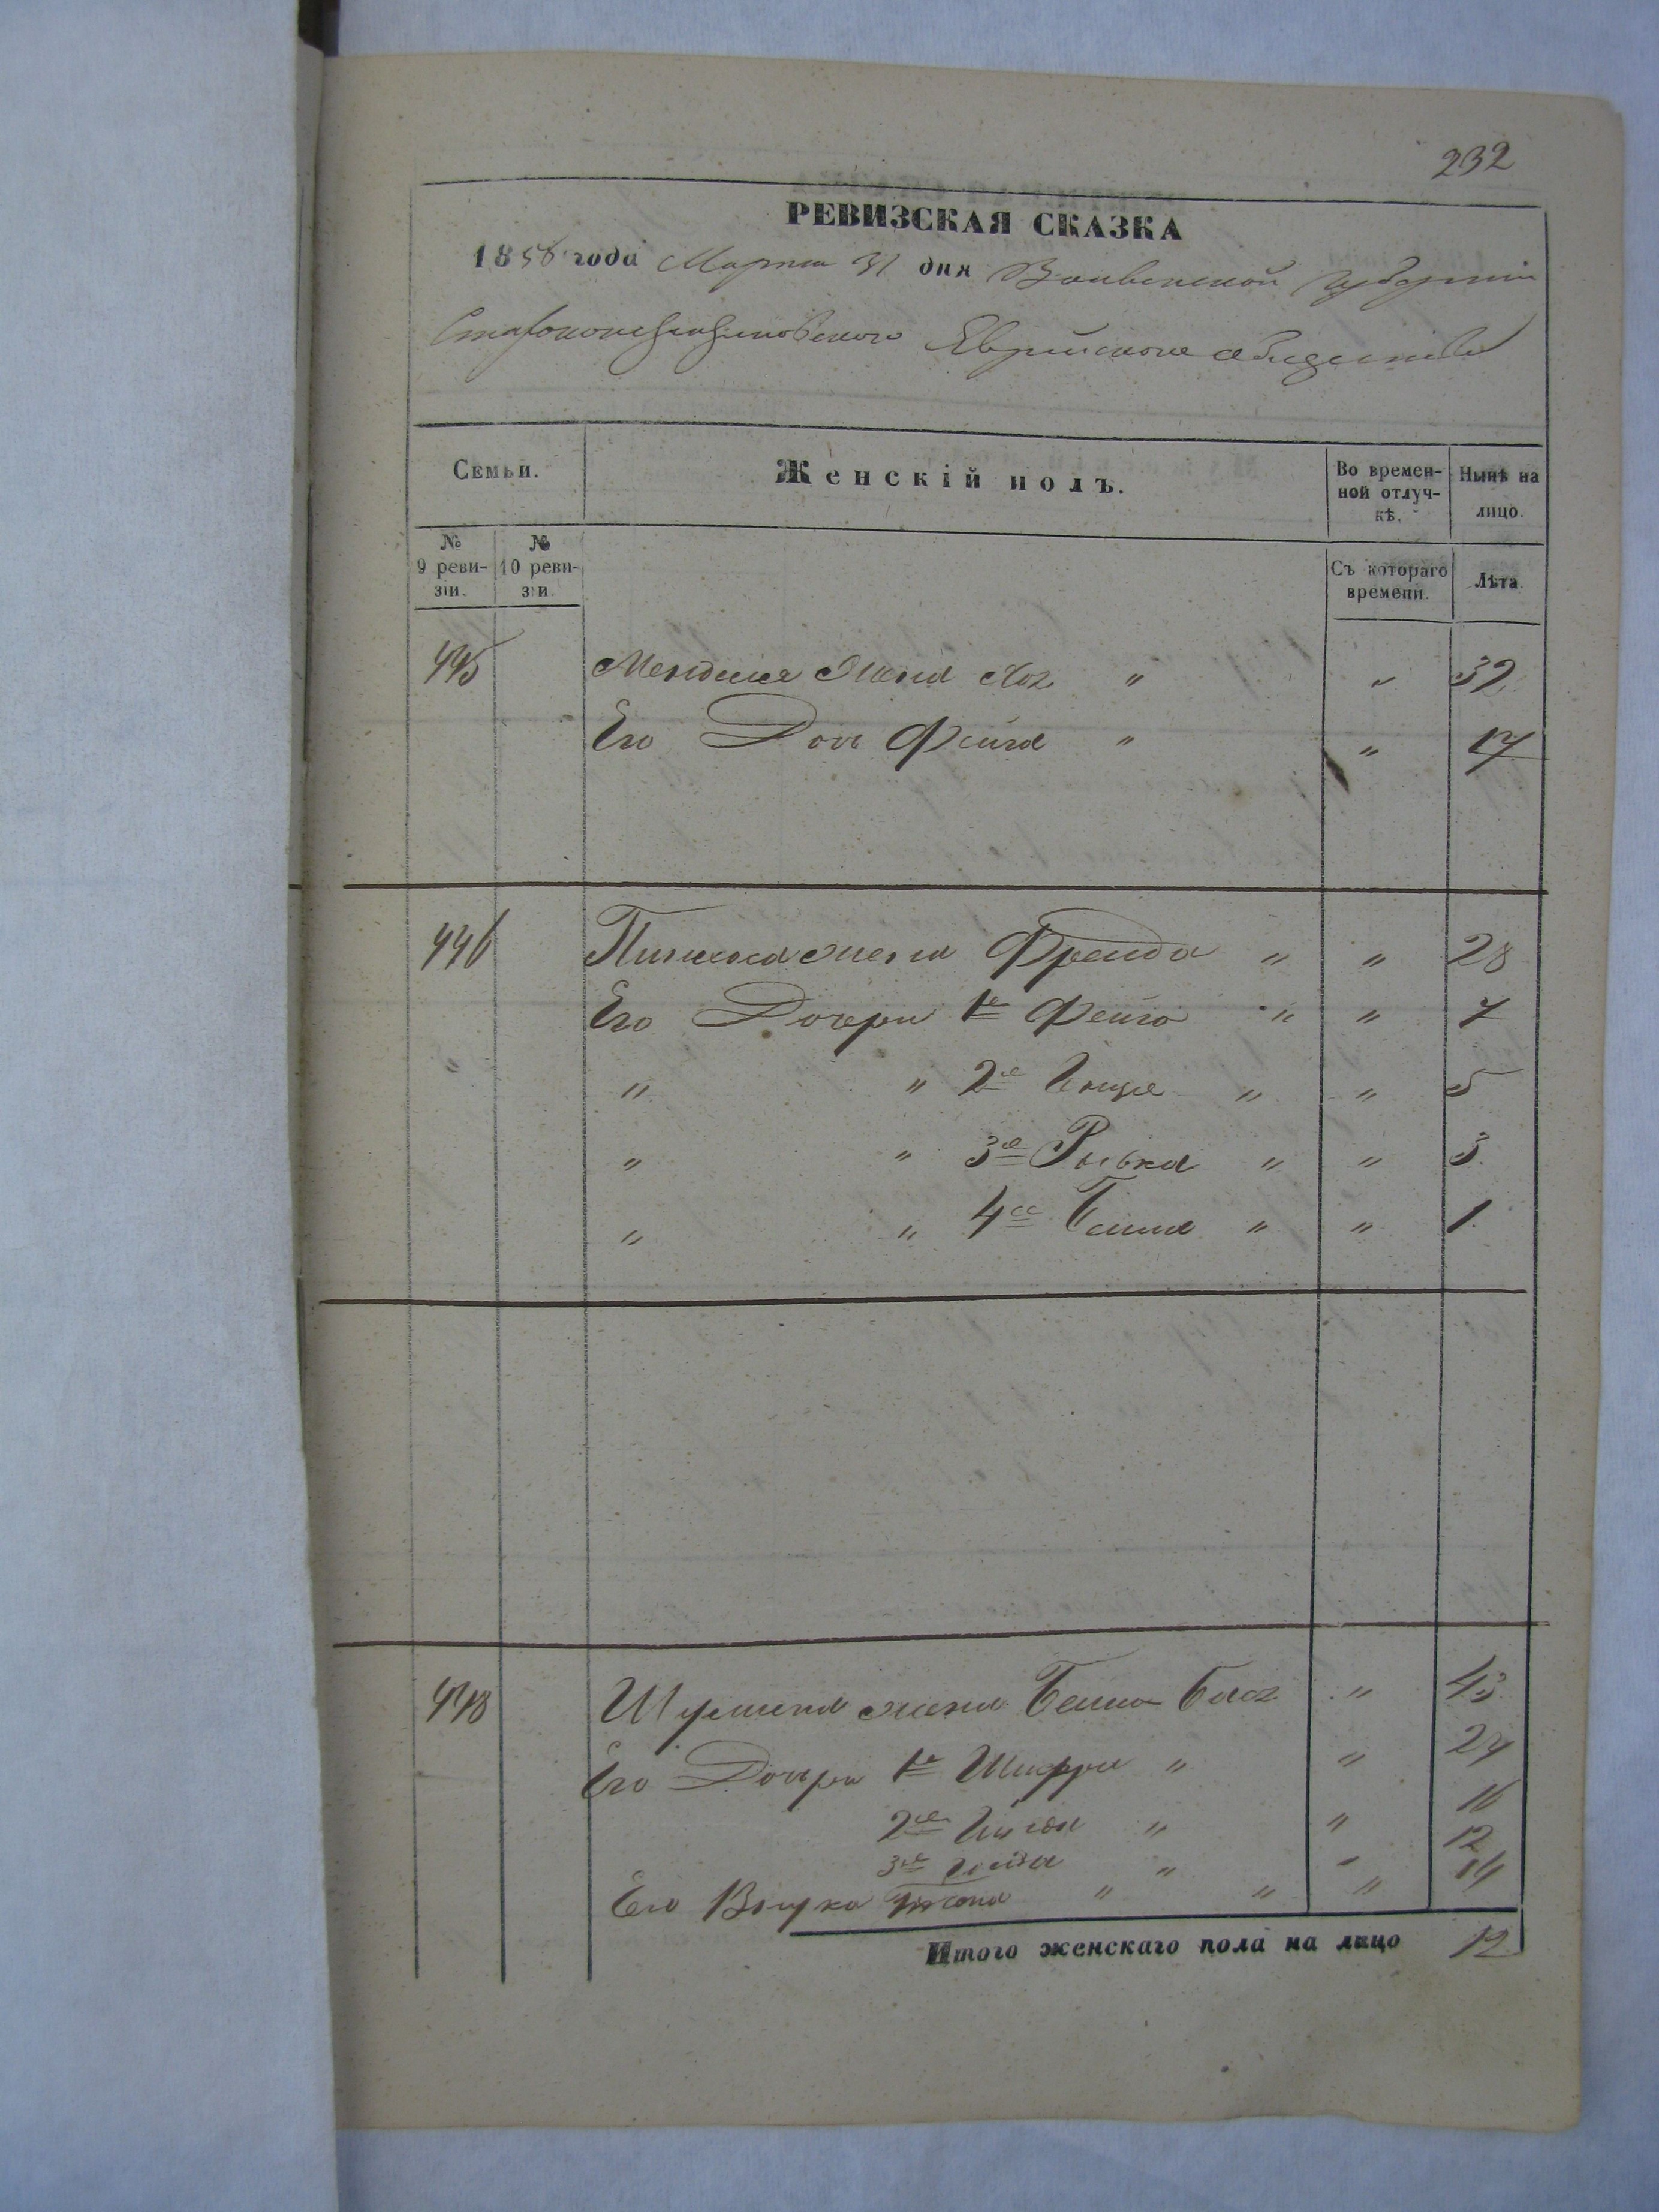 232
РЕВИЗСКАЯ СКАЗКА
1858 года Марта 31 дня Волынской Губернии
Староконстантиновского Еврейского общества
Семьи. Женскій полъ. Во временной отлучкѣ. Нынѣ на лицо.
№ 9 ревизіи. № 10 ревизіи. Съ котораго времени. Лѣта.
445 Жена " " 32
Его Дочь Фейга " " 17
446 жена Фрейда " " 28
Его Дочери 1я Фейга " " 7
" " 2я " " 5
" " 3я Рывка " " 3
" " 4я Бейла " " 1
448 жена Бейла " 43
Его Дочери 1я Шифра " " 24
2я " " 16
3я " " 12
Его Внучка " " " 14
Итого женскаго пола на лицо 12